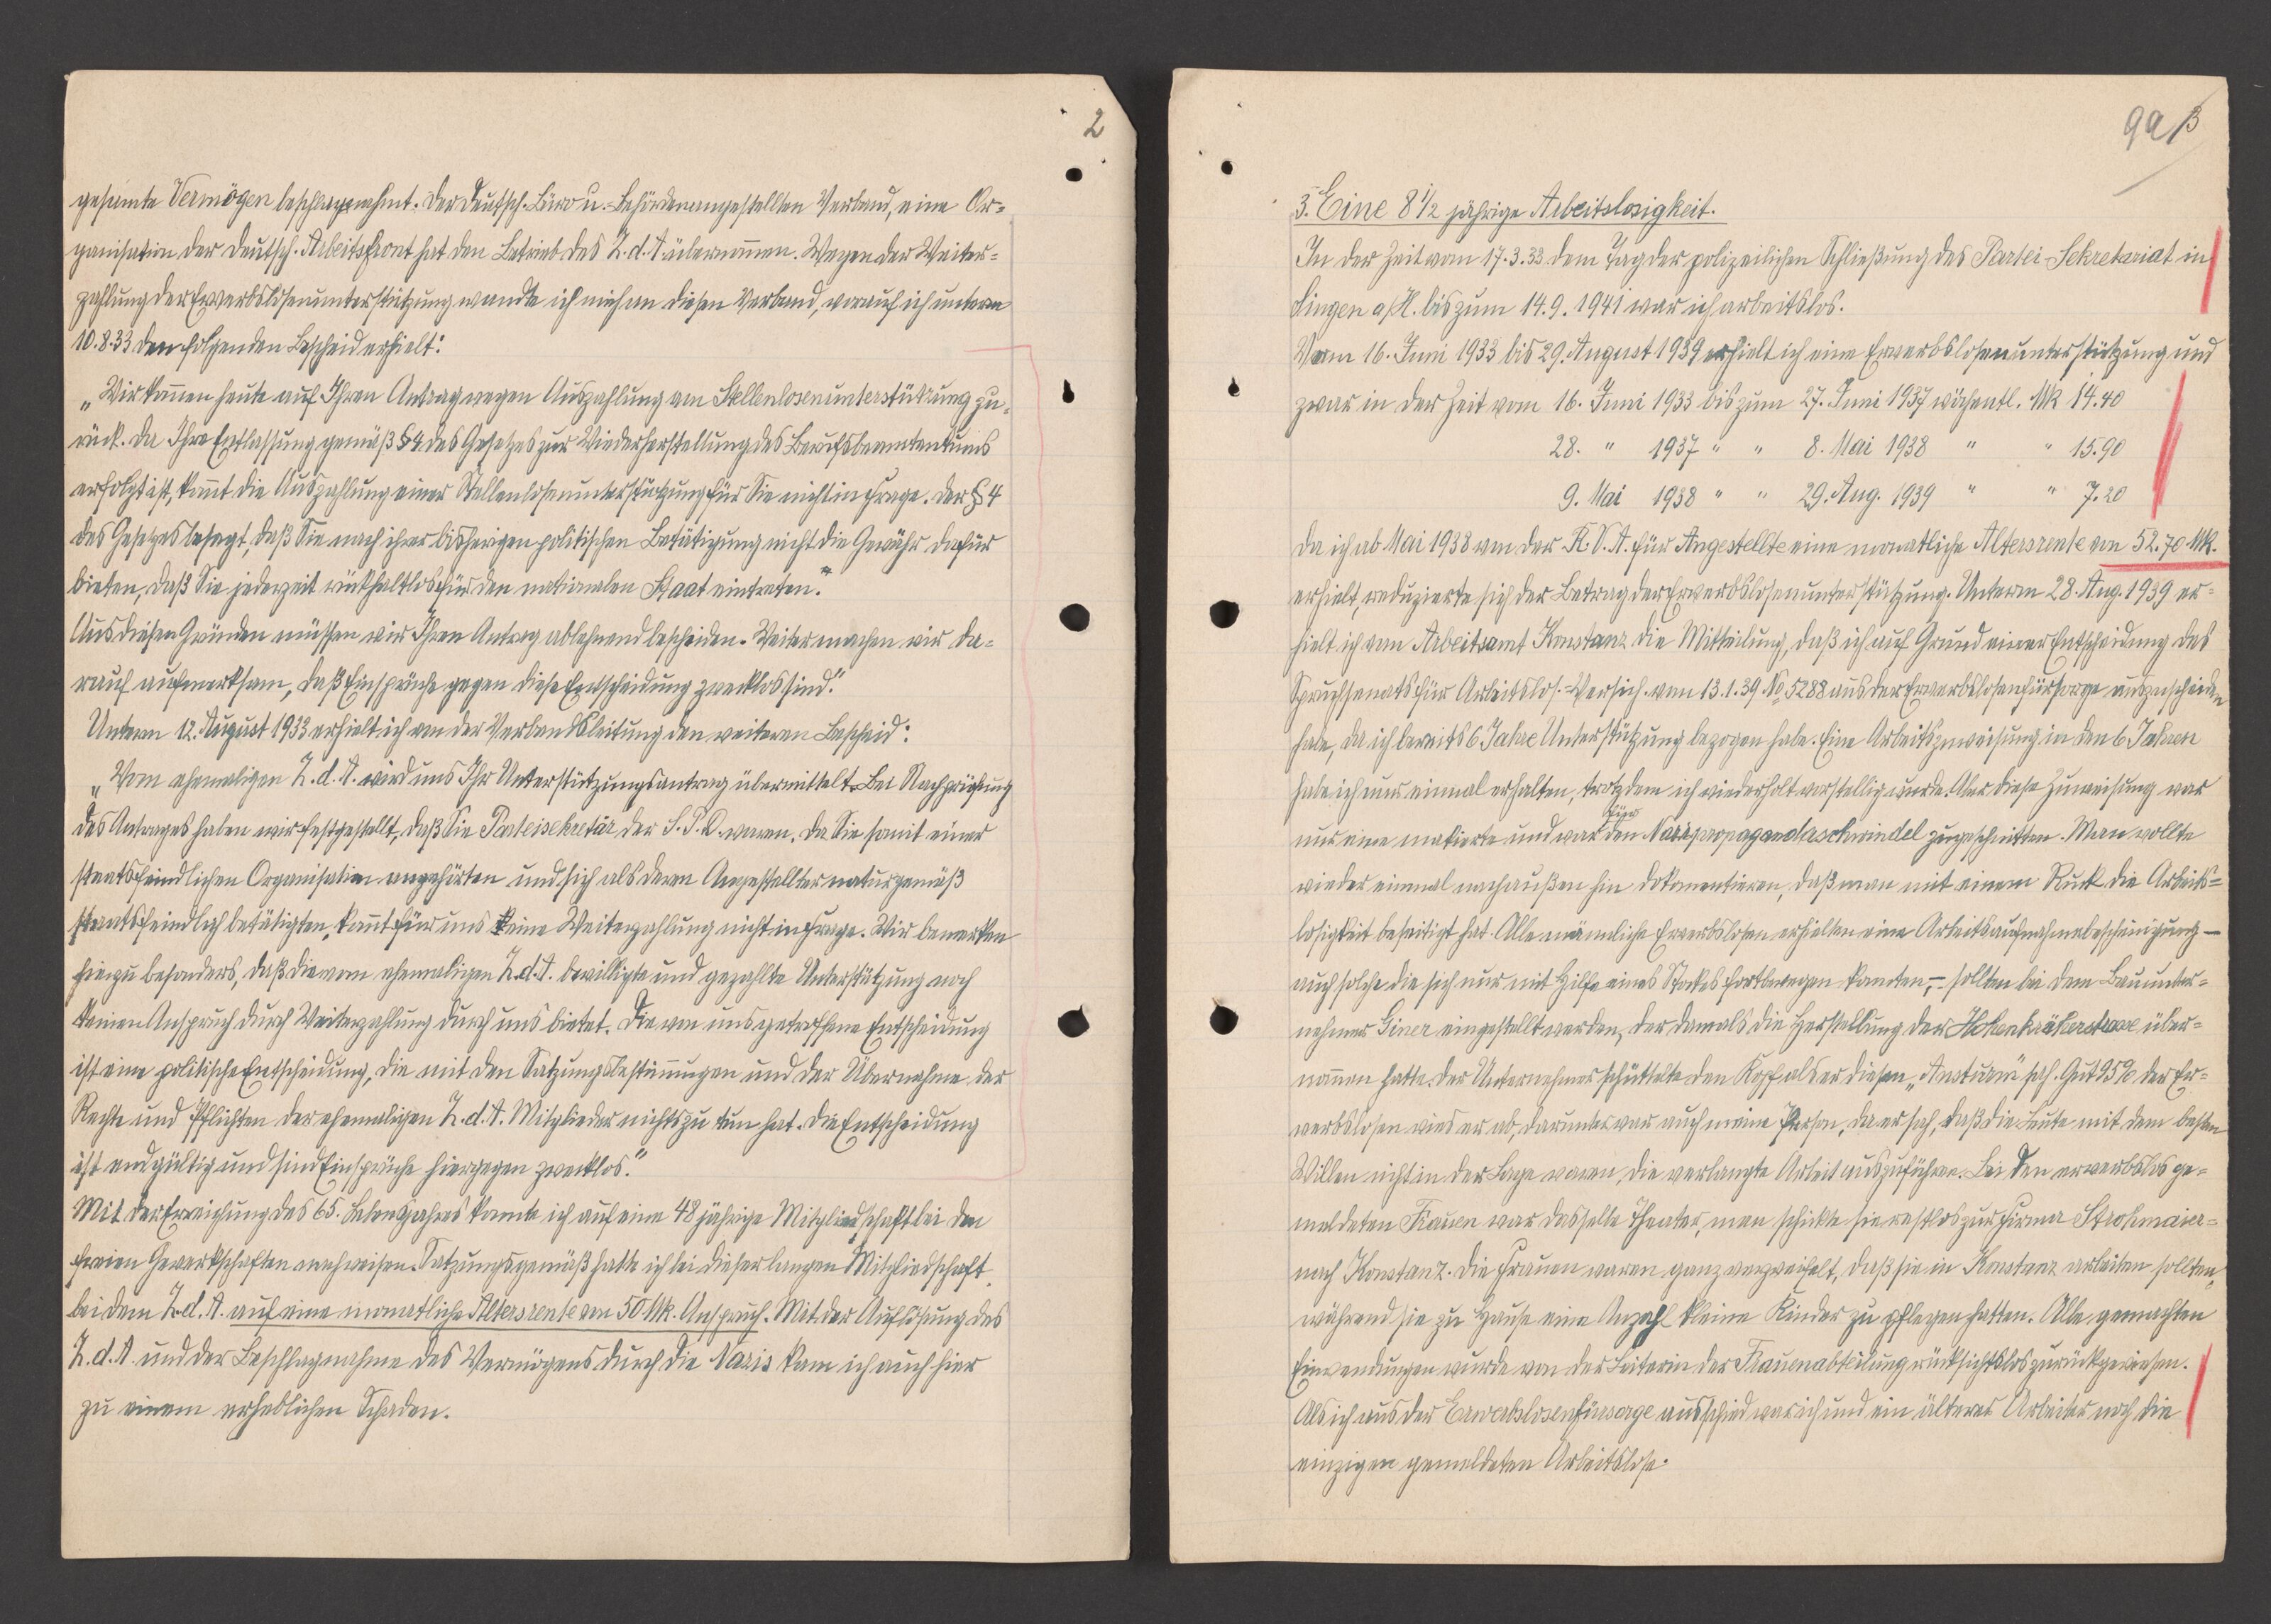 2
gesamte Vermögen beschlagnahmt. Der Deutsch. Büro u. Behördenangestellten Verband, eine Or=
ganisation der Deutsch. Arbeitsfront hat den Betrieb des Z.d.A. übernommen. Wegen der Weiter=
zahlung der Erwerbslosenunterstützung wandte ich mich an diesen Verband, worauf ich unterm
10.8.33 den folgenden Bescheid erhielt:
„Wir kommen heute auf Ihren Antrag wegen Auszahlung von Stellenlosenunterstützung zu=
rück. Da Ihre Entlassung gemäß § 4 des Gesetzes zur Wiederherstellung des Berufsbeamtentums
erfolgt ist, kommt die Auszahlung einer Stellenlosenunterstützung für Sie nicht in Frage. Der § 4
des Gesetzes besagt, daß Sie nach ihrer bisherigen politischen Betätigung nicht die Gewähr dafür
bieten, daß Sie jederzeit rückhaltlos für den nationalen Staat eintreten."
Aus diesen Gründen müssen wir Ihren Antrag ablehnend bescheiden. Weiter machen wir da=
rauf aufmerksam, daß Einsprüche gegen diese Entscheidung zwecklos sind."
Unterm 12. August 1933 erhielt ich von der Verbandsleitung den weiteren Bescheid:
„Vom ehemaligen Z.d.A. wird uns Ihr Unterstützungsantrag übermittelt. Bei Nachprüfung
des Antrages haben wir festgestellt, daß Sie Parteisekretär der S.P.D. waren. Da Sie somit einer
staatsfeindlichen Organisation angehörten und sich als deren Angestellter naturgemäß
staatsfeindlich betätigten, kommt für uns eine Weiterzahlung nicht in Frage. Wir bemerken
hiezu besonders, daß die vom ehemaligen Z.d.A. bewilligte und gezahlte Unterstützung noch
keinen Anspruch durch Weiterzahlung durch uns bietet. Die von uns getroffene Entscheidung
ist eine politische Entscheidung, die mit den Satzungsbestimmungen und der Übernahme der
Rechte und Pflichten der ehemaligen Z.d.A. Mitglieder nichts zu tun hat. Die Entscheidung
ist endgültig und sind Einsprüche hiergegen zwecklos."
Mit der Erreichung des 65. Lebensjahres konnte ich auf eine 48 jährige Mitgliedschaft bei den
freien Gewerkschaften nachweisen. Satzungsgemäß hatte ich bei dieser langen Mitgliedschaft
bei dem Z.d.A. auf eine monatliche Altersrente von 50 Mk. Anspruch. Mit der Auflösung des
Z.d.A. und der Beschlagnahme des Vermögens durch die Nazis kam ich auch hier
zu einem erheblichen Schaden.
99 3
3. Eine 8 1/2 jährige Arbeitslosigkeit.
In der Zeit vom 17.3.33 dem Tag der polizeilichen Schließung des Partei-Sekretariat in
Singen a/H. bis zum 14.9.1941 war ich arbeitslos.
Vom 16. Juni 1933 bis 29. August 1939 erhielt ich eine Erwerbslosenunterstützung und
zwar in der Zeit vom 16. Juni 1933 bis zum 27. Juni 1937 wöchentl. Mk 14.40
28. " 1937 " " 8. Mai 1938 " " 15.90
9. Mai 1938 " " 29. Aug. 1939 " " 7.20
Da ich ab Mai 1938 von der R.V.A. für Angestellte eine monatliche Altersrente von 52.70 Mk.
erhielt, reduzierte sich der Betrag der Erwerbslosenunterstützung. Unterm 28. Aug. 1939 er=
hielt ich vom Arbeitsamt Konstanz die Mitteilung, daß ich auf Grund einer Entscheidung des
Spruchsenats für Arbeitslos.-Versich. vom 13.1.39 No 5288 aus der Erwerbslosenfürsorge auszuscheiden
habe, da ich bereits 6 Jahre Unterstützung bezogen habe. Eine Arbeitszuweisung in den 6 Jahren
habe ich nur einmal erhalten, trotzdem ich wiederholt vorstellig wurde. Aber diese Zuweisung war
nur eine makierte und war für den Nazipropagandaschwindel zugeschnitten. Man wollte
wieder einmal nach außen hin dokomentieren, daß man mit einem Ruck die Arbeits=
losigkeit beseitigt hat. Alle männliche Erwerbslosen erhielten eine Arbeitsaufnahmebescheinigung –
auch solche die sich nur mit Hilfe eines Stockes fortbewegen konnten, – sollten bei dem Bauunter=
nehmer Giner eingestellt werden, der damals die Herstellung der Hohenkräherstrasse über=
nommen hatte. Der Unternehmer schüttelte den Kopf als er diesen „Ansturm" sah. Gut 95% der Er=
werbslosen wies er ab, darunter war auch meine Person, da er sah, daß die Leute mit dem besten
Willen nicht in der Lage waren, die verlangte Arbeit auszuführen. Bei den erwerbslos ge=
meldeten Frauen war dasselbe Theater, man schickte sie restlos zur Firma Strohmaier=
nach Konstanz. Die Frauen waren ganz verzweifelt, daß sie in Konstanz arbeiten sollten,
während sie zu Hause eine Anzahl kleine Kinder zu pflegen hatten. Alle gemachten
Einwendungen wurde von der Leiterin der Frauenabteilung rücksichtslos zurückgewiesen.
Als ich aus der Erwerbslosenfürsorge ausschied war ich und ein älterer Arbeiter noch die
einzigen gemeldeten Arbeitslose.